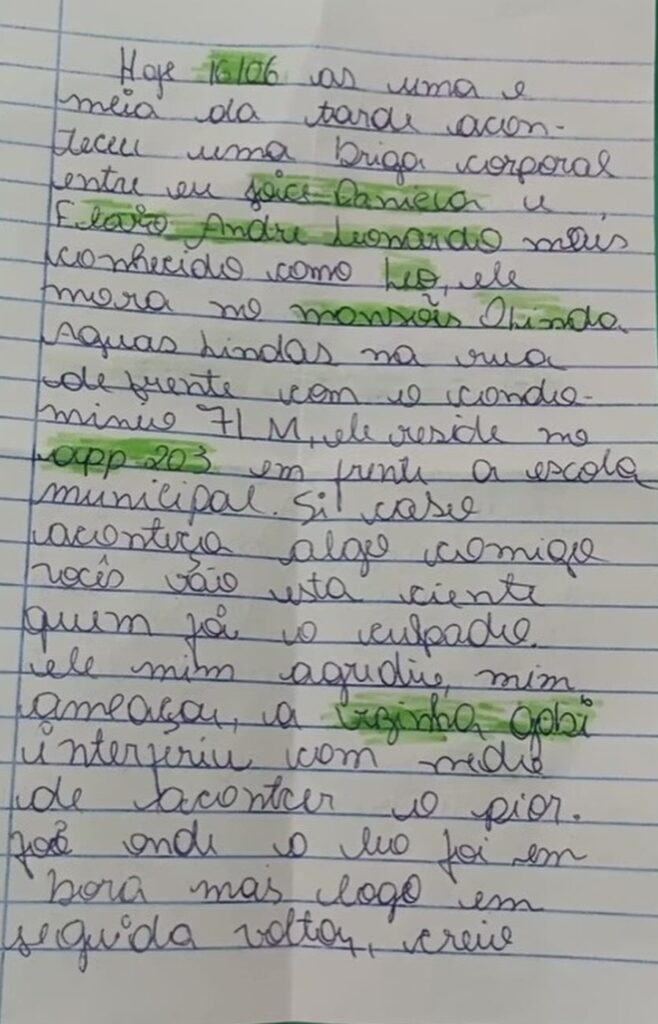 Hoje 16/06 as uma e
meia da tarde acon-
teceu uma briga corporal
entre eu Joice Daniela e
Flavio Andre Leonardo mais
conhecido como Leo, ele
mora no mansões Olinda
Aguas Lindas na rua
de frente com o condo-
minio 71 M, ele reside no
app 203 em frente a escola
municipal. Si caso
aconteça algo comigo
vocês vão esta ciente
quem foi o culpado.
ele mim agrediu, mim
ameaçou, a vizinha Gabi
interferiu com medo
de acontcer o pior.
foi onde o Leo foi em
bora mas logo em
seguida voltou, creio